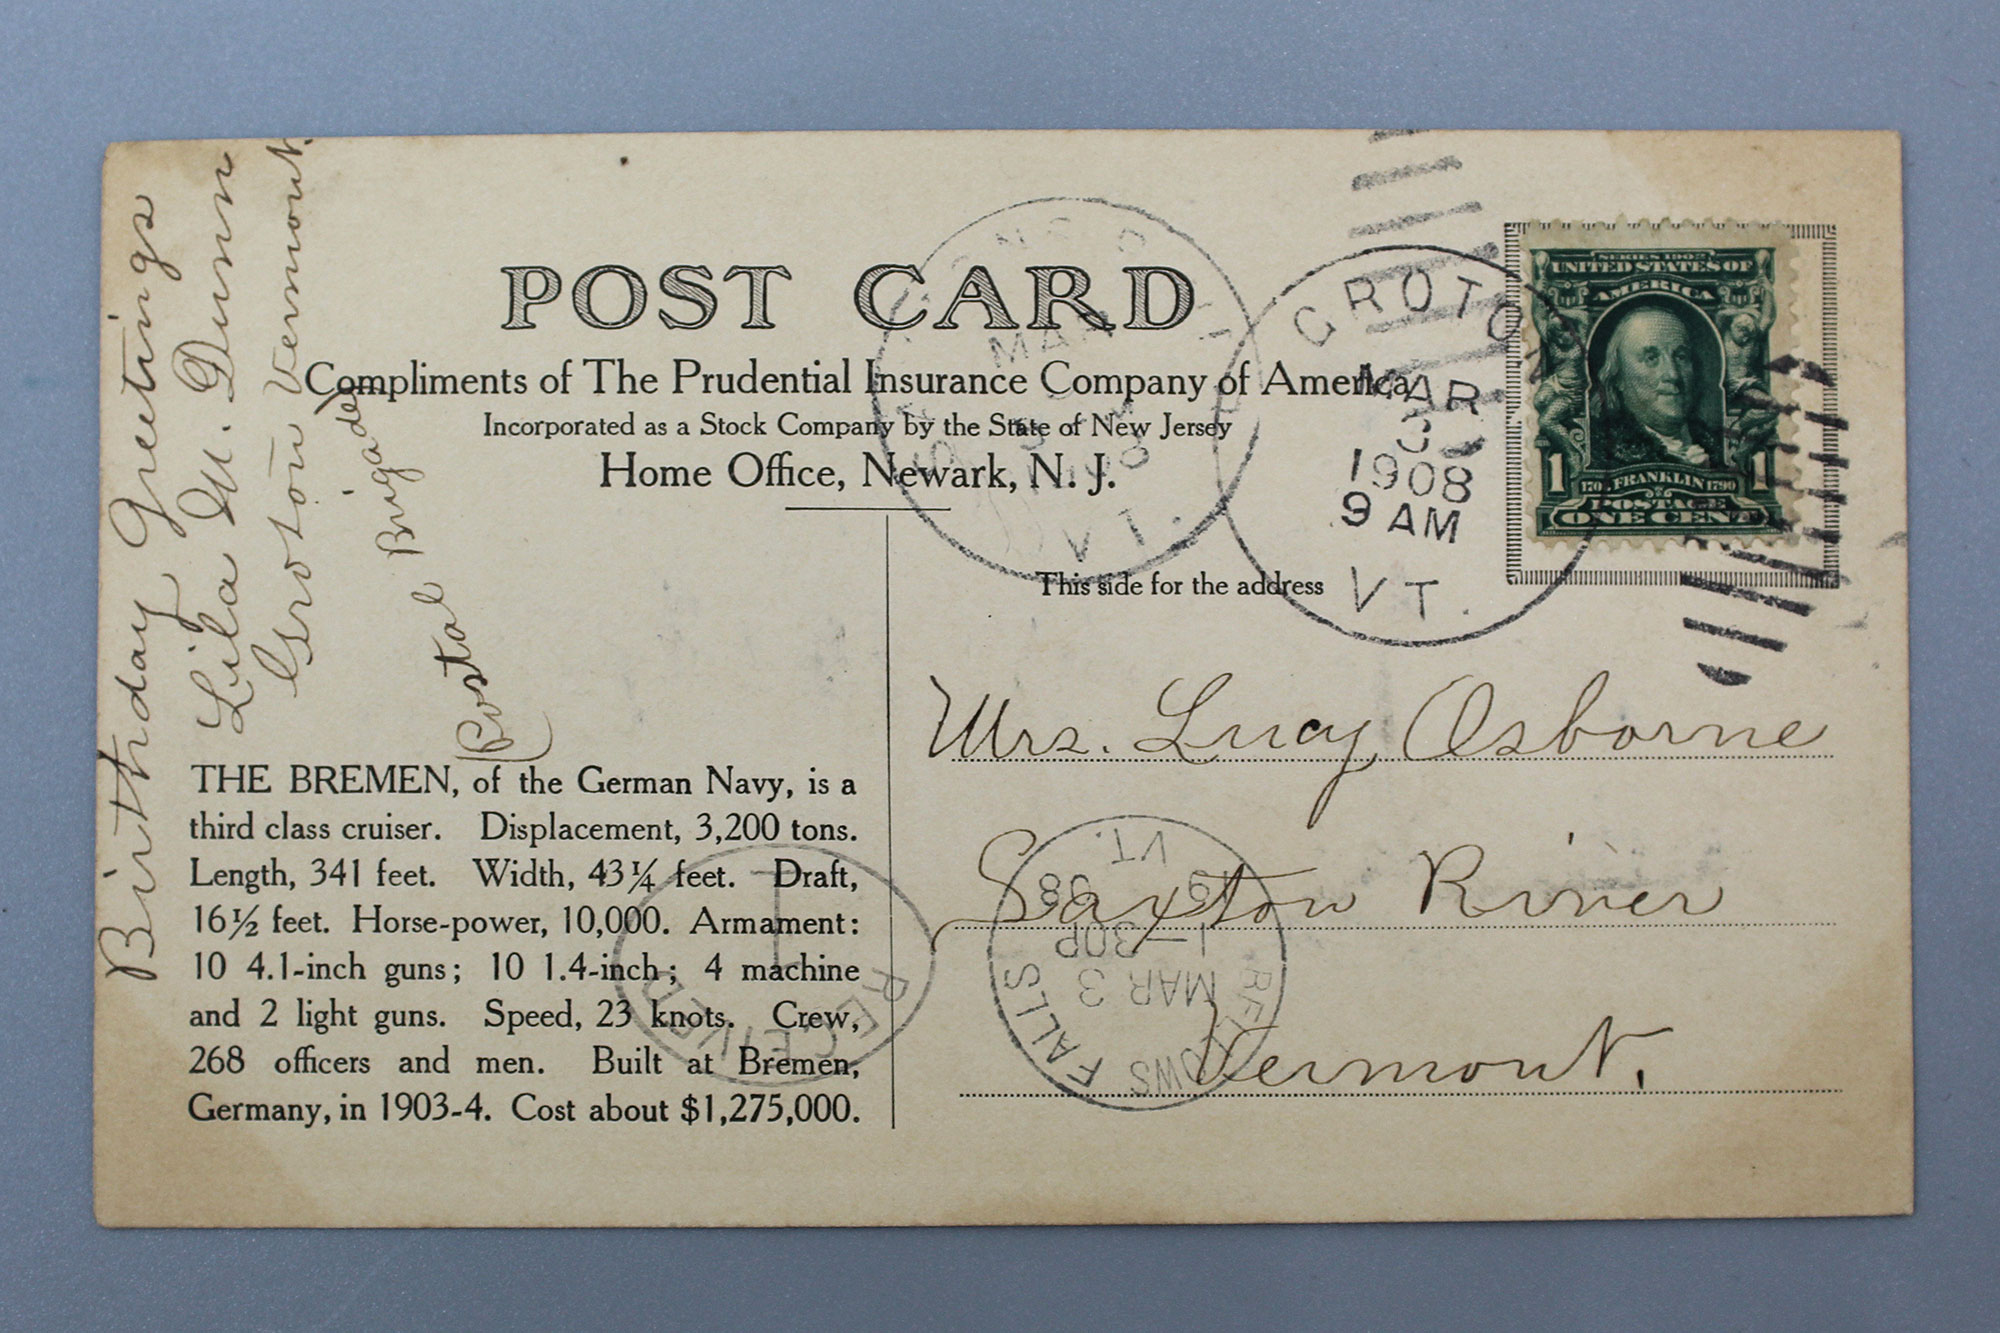 Birthday Greetings
Lila M. Dunn
Groton Vermont.
(Postal Brigade)
POST CARD
Compliments of The Prudential Insurance Company of America
Incorporated as a Stock Company by the State of New Jersey
Home Office, Newark, N. J.
This side for the address
GROTON
MAR
3
1908
9 AM
VT.
MAR
3
VT.
SERIES 1902
UNITED STATES OF
AMERICA
1 1
FRANKLIN 1790
POSTAGE
ONE CENT
Mrs. Lucy Osborne
Saxton River
Vermont.
THE BREMEN, of the German Navy, is a
third class cruiser. Displacement, 3,200 tons.
Length, 341 feet. Width, 43¼ feet. Draft,
16½ feet. Horse-power, 10,000. Armament:
10 4.1-inch guns; 10 1.4-inch; 4 machine
and 2 light guns. Speed, 23 knots. Crew,
268 officers and men. Built at Bremen,
Germany, in 1903-4. Cost about $1,275,000.
RECEIVED
BELLOWS FALLS
MAR 3
1—30P
19 08
VT.